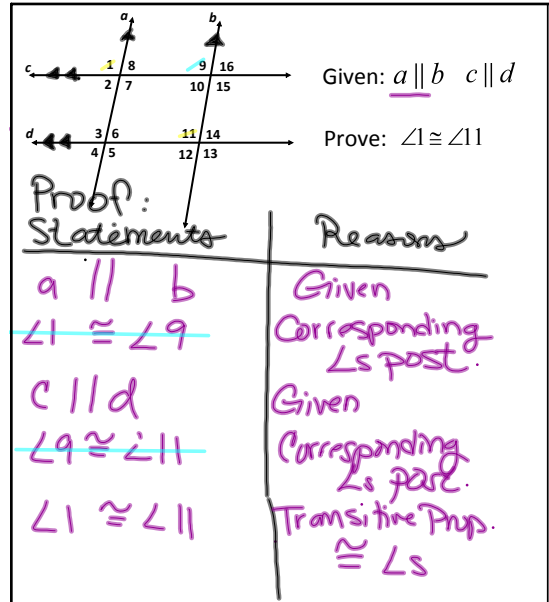 a b
c 1 8 9 16
2 7 10 15
Given: a || b c || d
d 3 6 11 14
4 5 12 13
Prove: ∠1 ≅ ∠11
Proof:
Statements Reasons
a || b Given
∠1 ≅ ∠9 Corresponding
∠s post.
c || d Given
∠9 ≅ ∠11 Corresponding
∠s post.
∠1 ≅ ∠11 Transitive Prop.
≅ ∠s